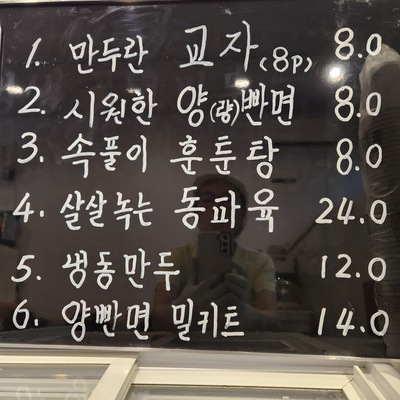 1. 만두란 교자(8P) 8.0
2. 시원한 양(량)빤면 8.0
3. 속풀이 훈툰탕 8.0
4. 살살녹는 동파육 24.0
5. 냉동만두 12.0
6. 양빤면 밀키트 14.0